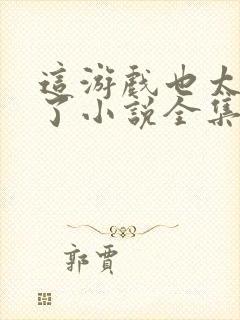 這游戲也太
了小說全集
郭賈